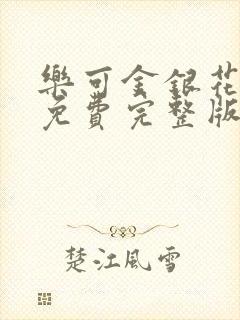 樂可金銀花
免費完整版
楚江風雪